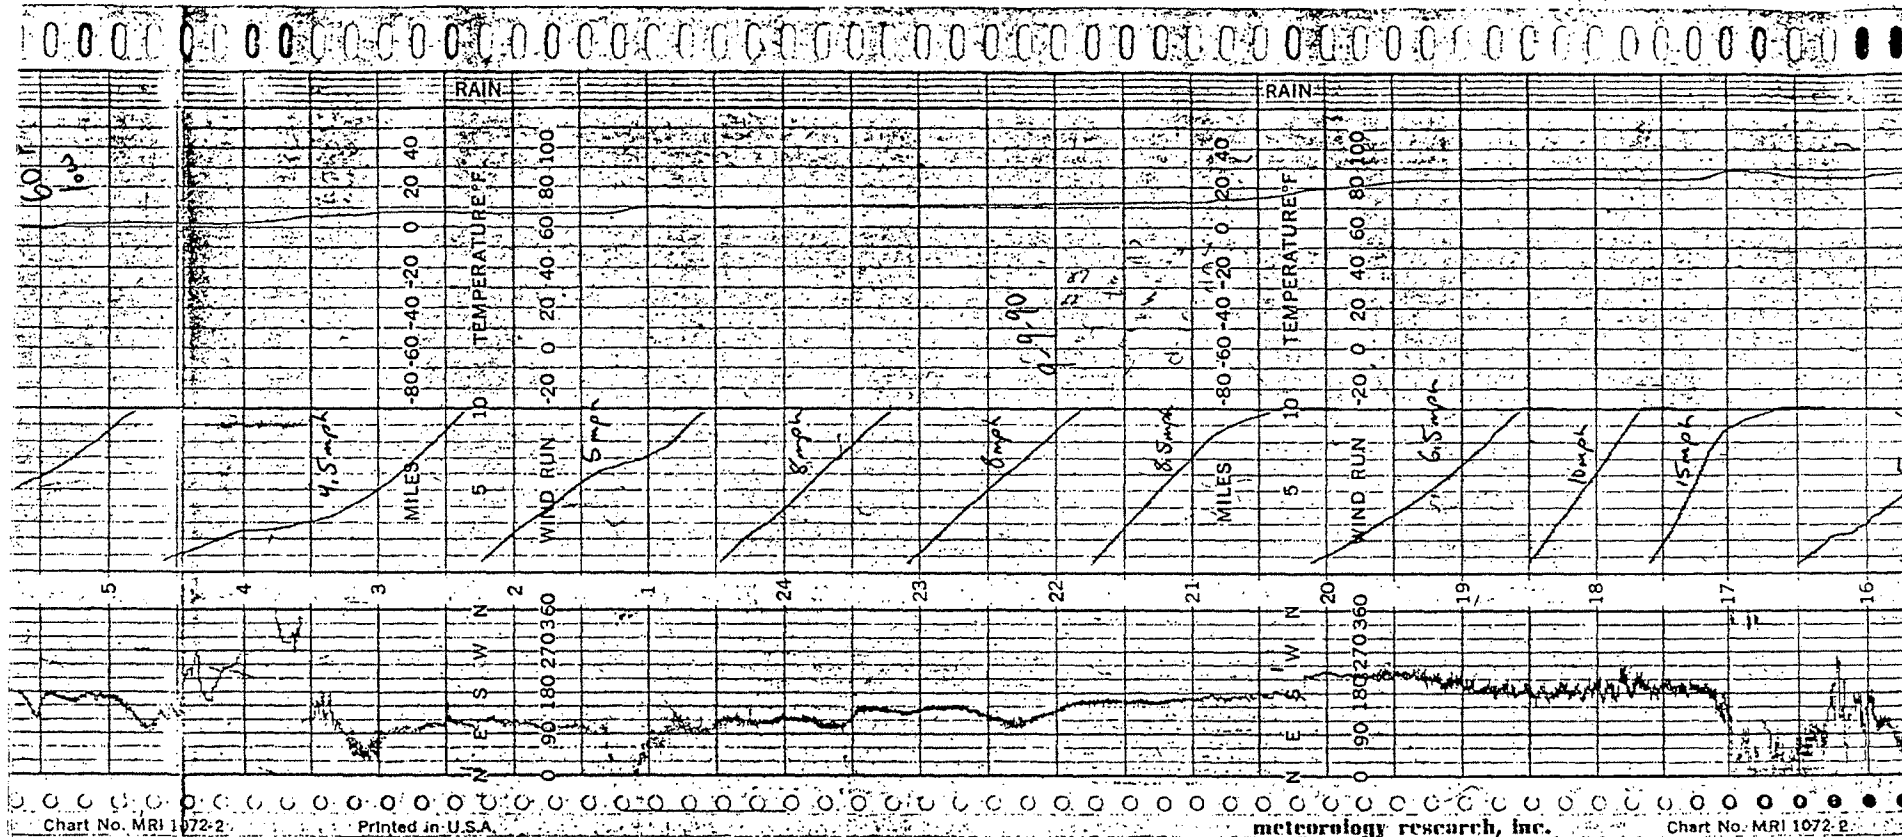 RAIN RAIN
60F
-80 -60 -40 -20 0 20 40
10 TEMPERATURE °F
-20 0 20 40 60 80 100
9/9/90
-80 -60 -40 -20 0 20 40
10 TEMPERATURE °F
-20 0 20 40 60 80 100
4.5mph
MILES 5
WIND RUN
5mph
8mph
8mph
8.5mph
MILES 5
WIND RUN
6.5mph
10mph
15mph
5 4 3 2 1 24 23 22 21 20 19 18 17 16
N E S W N
0 90 180 270 360
N E S W N
0 90 180 270 360
Chart No. MRI 1072-2 Printed in U.S.A. meteorology research, inc. Chart No. MRI 1072-2